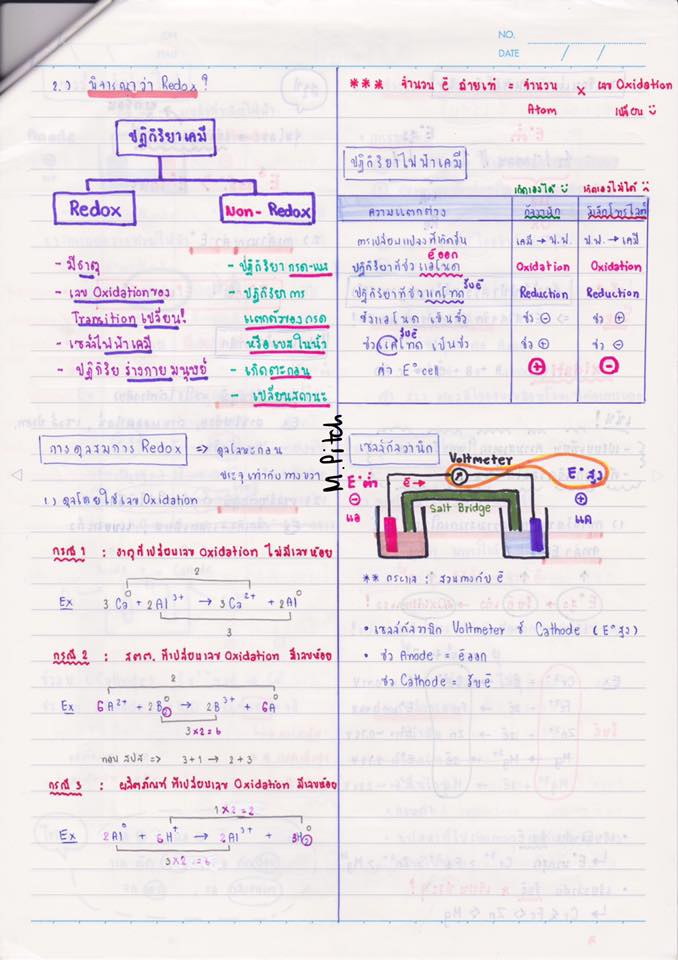 NO.
DATE / /
2.) พิจารณาว่า Redox?
ปฏิกิริยาเคมี
Redox
Non- Redox
- มีธาตุ
- เลข Oxidation ของ
Transition เปลี่ยน!
- เซลล์ไฟฟ้าเคมี
- ปฏิกิริยา ร่างกายมนุษย์
- ปฏิกิริยา กรด-เบส
- ปฏิกิริยา การ
แตกตัวของกรด
หรือเบสในน้ำ
- เกิดตะกอน
- เปลี่ยนสถานะ
การดุลสมการ Redox => ดุลโลหะก่อน
ประจุเท่ากับทางขวา
1) ดุลโดยใช้เลข Oxidation
กรณี 1 : ธาตุที่เปลี่ยนเลข Oxidation ไม่มีเลขห้อย
2
Ex 3Ca⁰ + 2Al³⁺ → 3Ca²⁺ + 2Al⁰
3
กรณี 2 : สตต. ที่เปลี่ยนเลข Oxidation มีเลขห้อย
2
Ex 6A²⁺ + 2B₂⁰ → 2B³⁺ + 6A⁰
3×2=6
ตอบ สปส => 3+1 → 2+3
กรณี 3 : ผลิตภัณฑ์ ที่เปลี่ยนเลข Oxidation มีเลขห้อย
1×2=2
Ex 2Al⁰ + 6H⁺ → 2Al³⁺ + 3H₂⁰
3×2=6
*** จำนวน ē ถ่ายเท = จำนวน Atom × เลข Oxidation เปลี่ยน
ปฏิกิริยาไฟฟ้าเคมี
เกิดเองได้ เกิดเองไม่ได้
ความแตกต่าง กัลวานิก อิเล็กโทรไลต์
การเปลี่ยนแปลงที่เกิดขึ้น เคมี → ฟ.ฟ. ฟ.ฟ. → เคมี
ē ออก
ปฏิกิริยาที่ขั้ว แอโนด Oxidation Oxidation
รับ ē
ปฏิกิริยาที่ขั้ว แคโทด Reduction Reduction
ขั้วแอโนด เป็นขั้ว ขั้ว ⊖ ขั้ว ⊕
รับ ē
ขั้วแคโทด เป็นขั้ว ขั้ว ⊕ ขั้ว ⊖
ค่า E° cell ⊕ ⊖
เซลล์กัลวานิก
Voltmeter
E° ต่ำ
⊖
แอ
ē →
Salt Bridge
E° สูง
⊕
แค
** กระแส : สวนทางกับ ē
• เซลล์กัลวานิก Voltmeter ชี้ Cathode (E° สูง)
• ขั้ว Anode = ē ออก
ขั้ว Cathode = รับ ē
M.Pitch